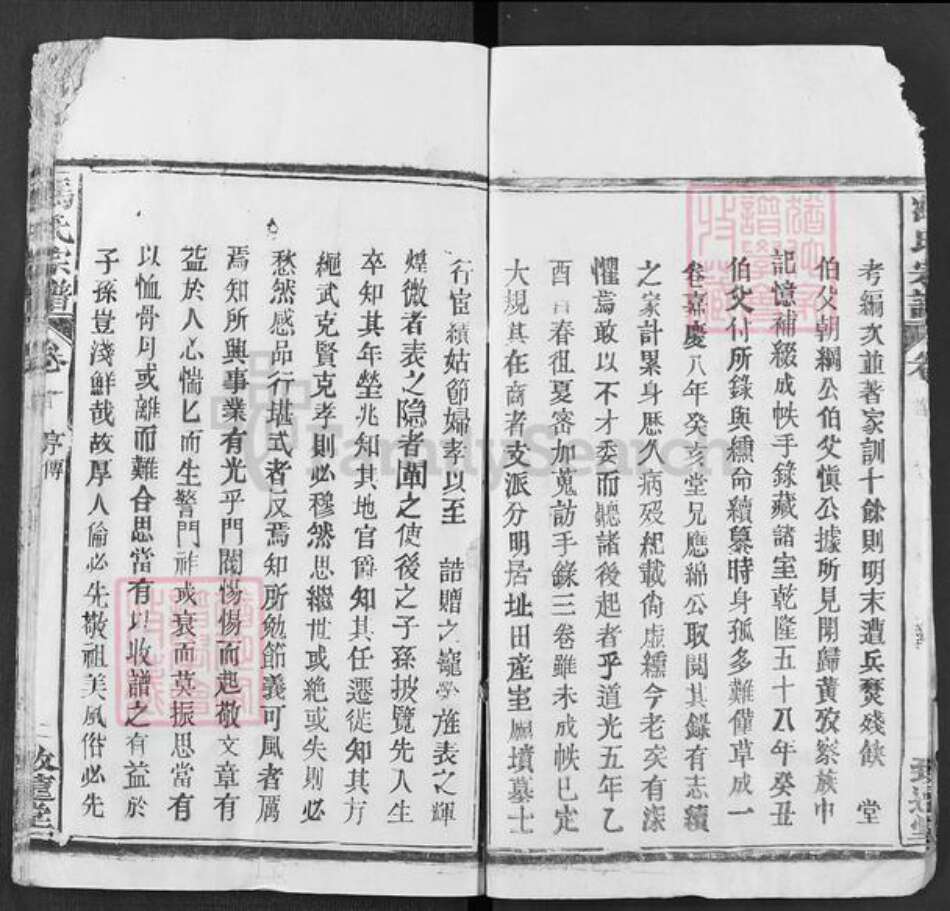 考編次並著家訓十餘則明末遭兵燹殘缺 堂
伯父朝綱公伯父慎公據所見聞歸黃攷察族中
記憶補綴成帙手錄藏諸室乾隆五十八年癸丑
伯父付所錄與繻命續纂時身孤多難僅草成一
卷嘉慶八年癸亥堂兄應綿公取閱其錄有志續
之家計累身歷久病歿紀載尙虛繻今老矣有深
懼焉敢以不才委而聽諸後起者乎道光五年乙
酉 春徂夏審加蒐訪手錄三卷雖未成帙已定
大規其在商者支派分明居址田產垔屬墳墓士
行宦績姑節婦孝以至 誥贈之寵 旌表之輝
煌微者表之隐者闡之使後之子孫披覽先人生
卒知其年塋兆知其地官爵知其任遷徙知其方
繩武克賢克孝則必穆然思繼世或絶或失則必
愁然感品行堪式者反焉知所勉節義可風者厲
焉知所興事業有光乎門閭惕惕而起敬文章有
益於人心惴匕而生警門祚或衰而莫振思當有
以恤骨月或離而難合思當有以收譜之有益於
子孫豈淺鮮哉故厚人倫必先敬祖美風俗必先
馮氏宗譜
卷一
序傳
FamilySearch